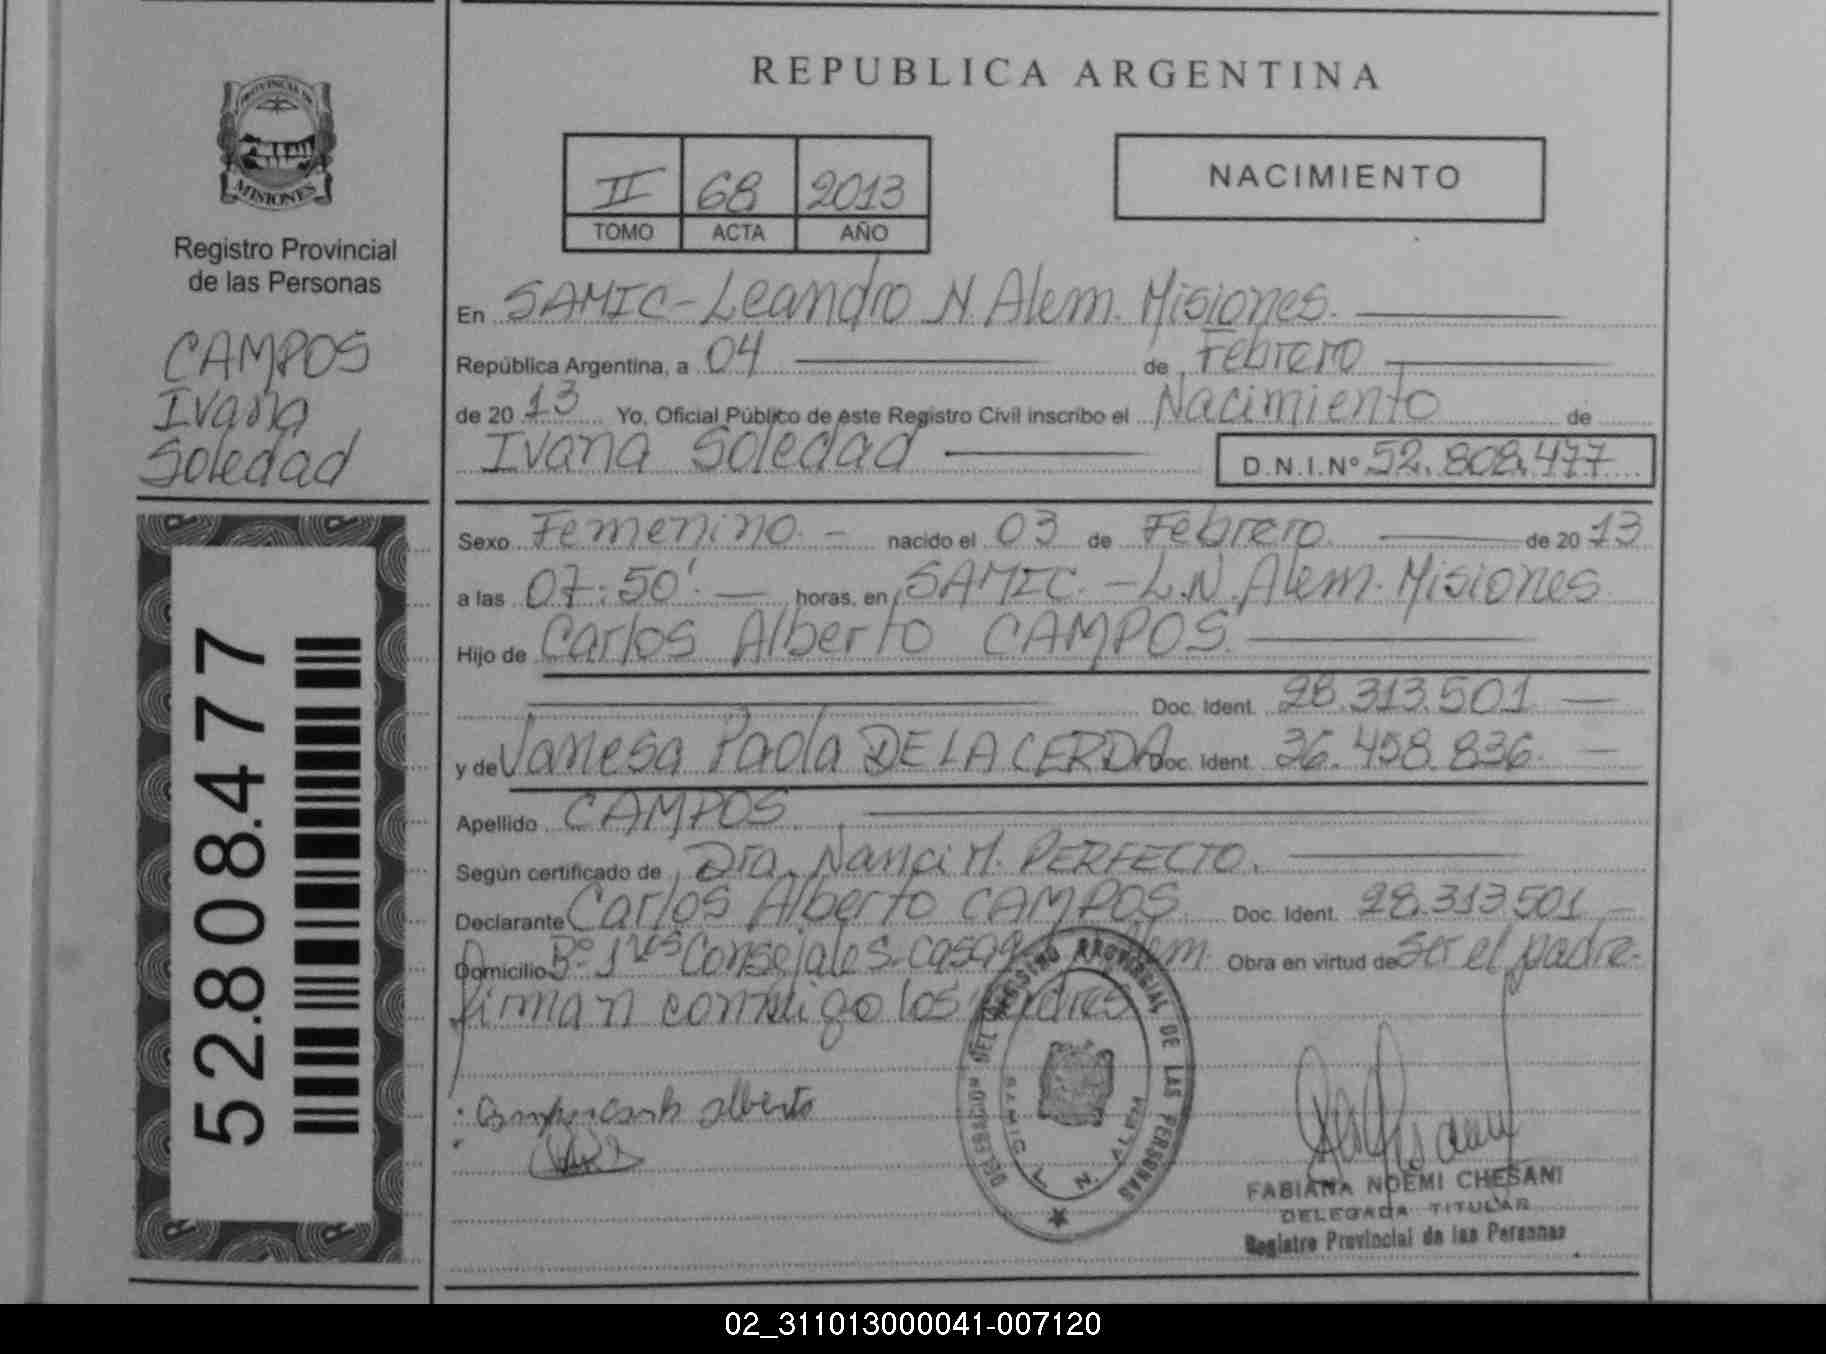 REPUBLICA ARGENTINA
PROVINCIA DE
MISIONES
Registro Provincial
de las Personas
CAMPOS
Ivana
Soledad
52.808.477
II 68 2013
TOMO ACTA AÑO
NACIMIENTO
En SAMIC-Leandro N. Alem. Misiones.
República Argentina, a 04 de Febrero
de 2013 Yo, Oficial Público de este Registro Civil inscribo el Nacimiento de
Ivana Soledad D.N.I.Nº 52.808.477
Sexo Femenino.- nacido el 03 de Febrero. de 2013
a las 07:50'. horas, en SAMIC.-L.N. Alem. Misiones
Hijo de Carlos Alberto CAMPOS.
Doc. Ident. 28.313.501
y de Vanesa Paola DE LA CERDA Doc. Ident. 36.458.836.
Apellido CAMPOS
Según certificado de Dra. Nanci M. PERFECTO.
Declarante Carlos Alberto CAMPOS. Doc. Ident. 28.313.501
Domicilio Bº 1ros Consejales. casa Alem. Obra en virtud de ser el padre.
firman conmigo los padres
alberto
DELEGACION DEL REGISTRO PROVINCIAL DE LAS PERSONAS
SAMIC L. N. ALEM
FABIANA NOEMI CHESANI
DELEGADA TITULAR
Registro Provincial de las Personas
02_311013000041-007120